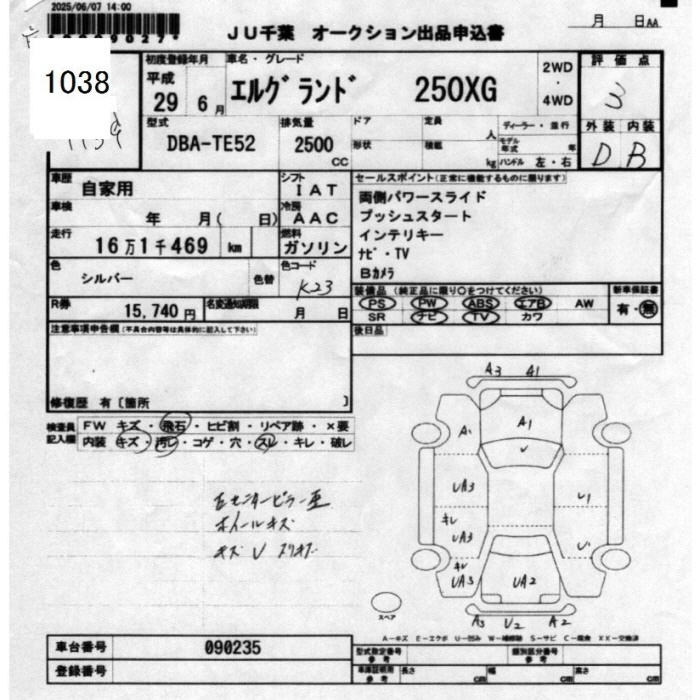 2025/06/07 14:00
JU千葉 オークション出品申込書
月 日AA
1038
初度登録年月
平成
29 6月
車名・グレード
エルグランド 250XG
2WD
・
4WD
評価点
3
外装 内装
D B
型式
DBA-TE52
排気量
2500
CC
ドア
定員
人
形状
積載
kg
ディーラー・並行
モデル年式 年
ハンドル 左・右
車歴
自家用
シフト
IAT
車検
年 月( 日)
冷房
AAC
走行
16万1千469 km
燃料
ガソリン
色
シルバー
色替
色コード
K23
R券
15,740円
名変通知期限
月 日
セールスポイント(正常に機能するものに限ります)
両側パワースライド
プッシュスタート
インテリキー
ナビ・TV
Bカメラ
装備品(純正品に限り○をつけてください)
PS PW ABS エアB AW
SR ナビ TV カワ
新車保証書
有・無
後日品
注意事項申告欄(不具合内容等は具体的に記入して下さい)
修復歴 有〔箇所 〕
検査員記入欄
FW キズ・飛石・ヒビ割・リペア跡・×要
内装 キズ・汚レ・コゲ・穴・スレ・キレ・破レ
右センターピラー歪
ホイールキズ
キズ U スリキズ
A3 A1
A1
A1
U
UA3
U1
キレ
UA3
U1
キレ
UA3
UA2
A3 U2 A2
スペア
A-キズ E-エクボ U-凹み W-補修跡 S-サビ C-腐食 XX-交換済
車台番号
090235
登録番号
型式指定番号
参考
類別区分番号
参考
車庫証明用
参考
長さ cm
幅 cm
高さ cm